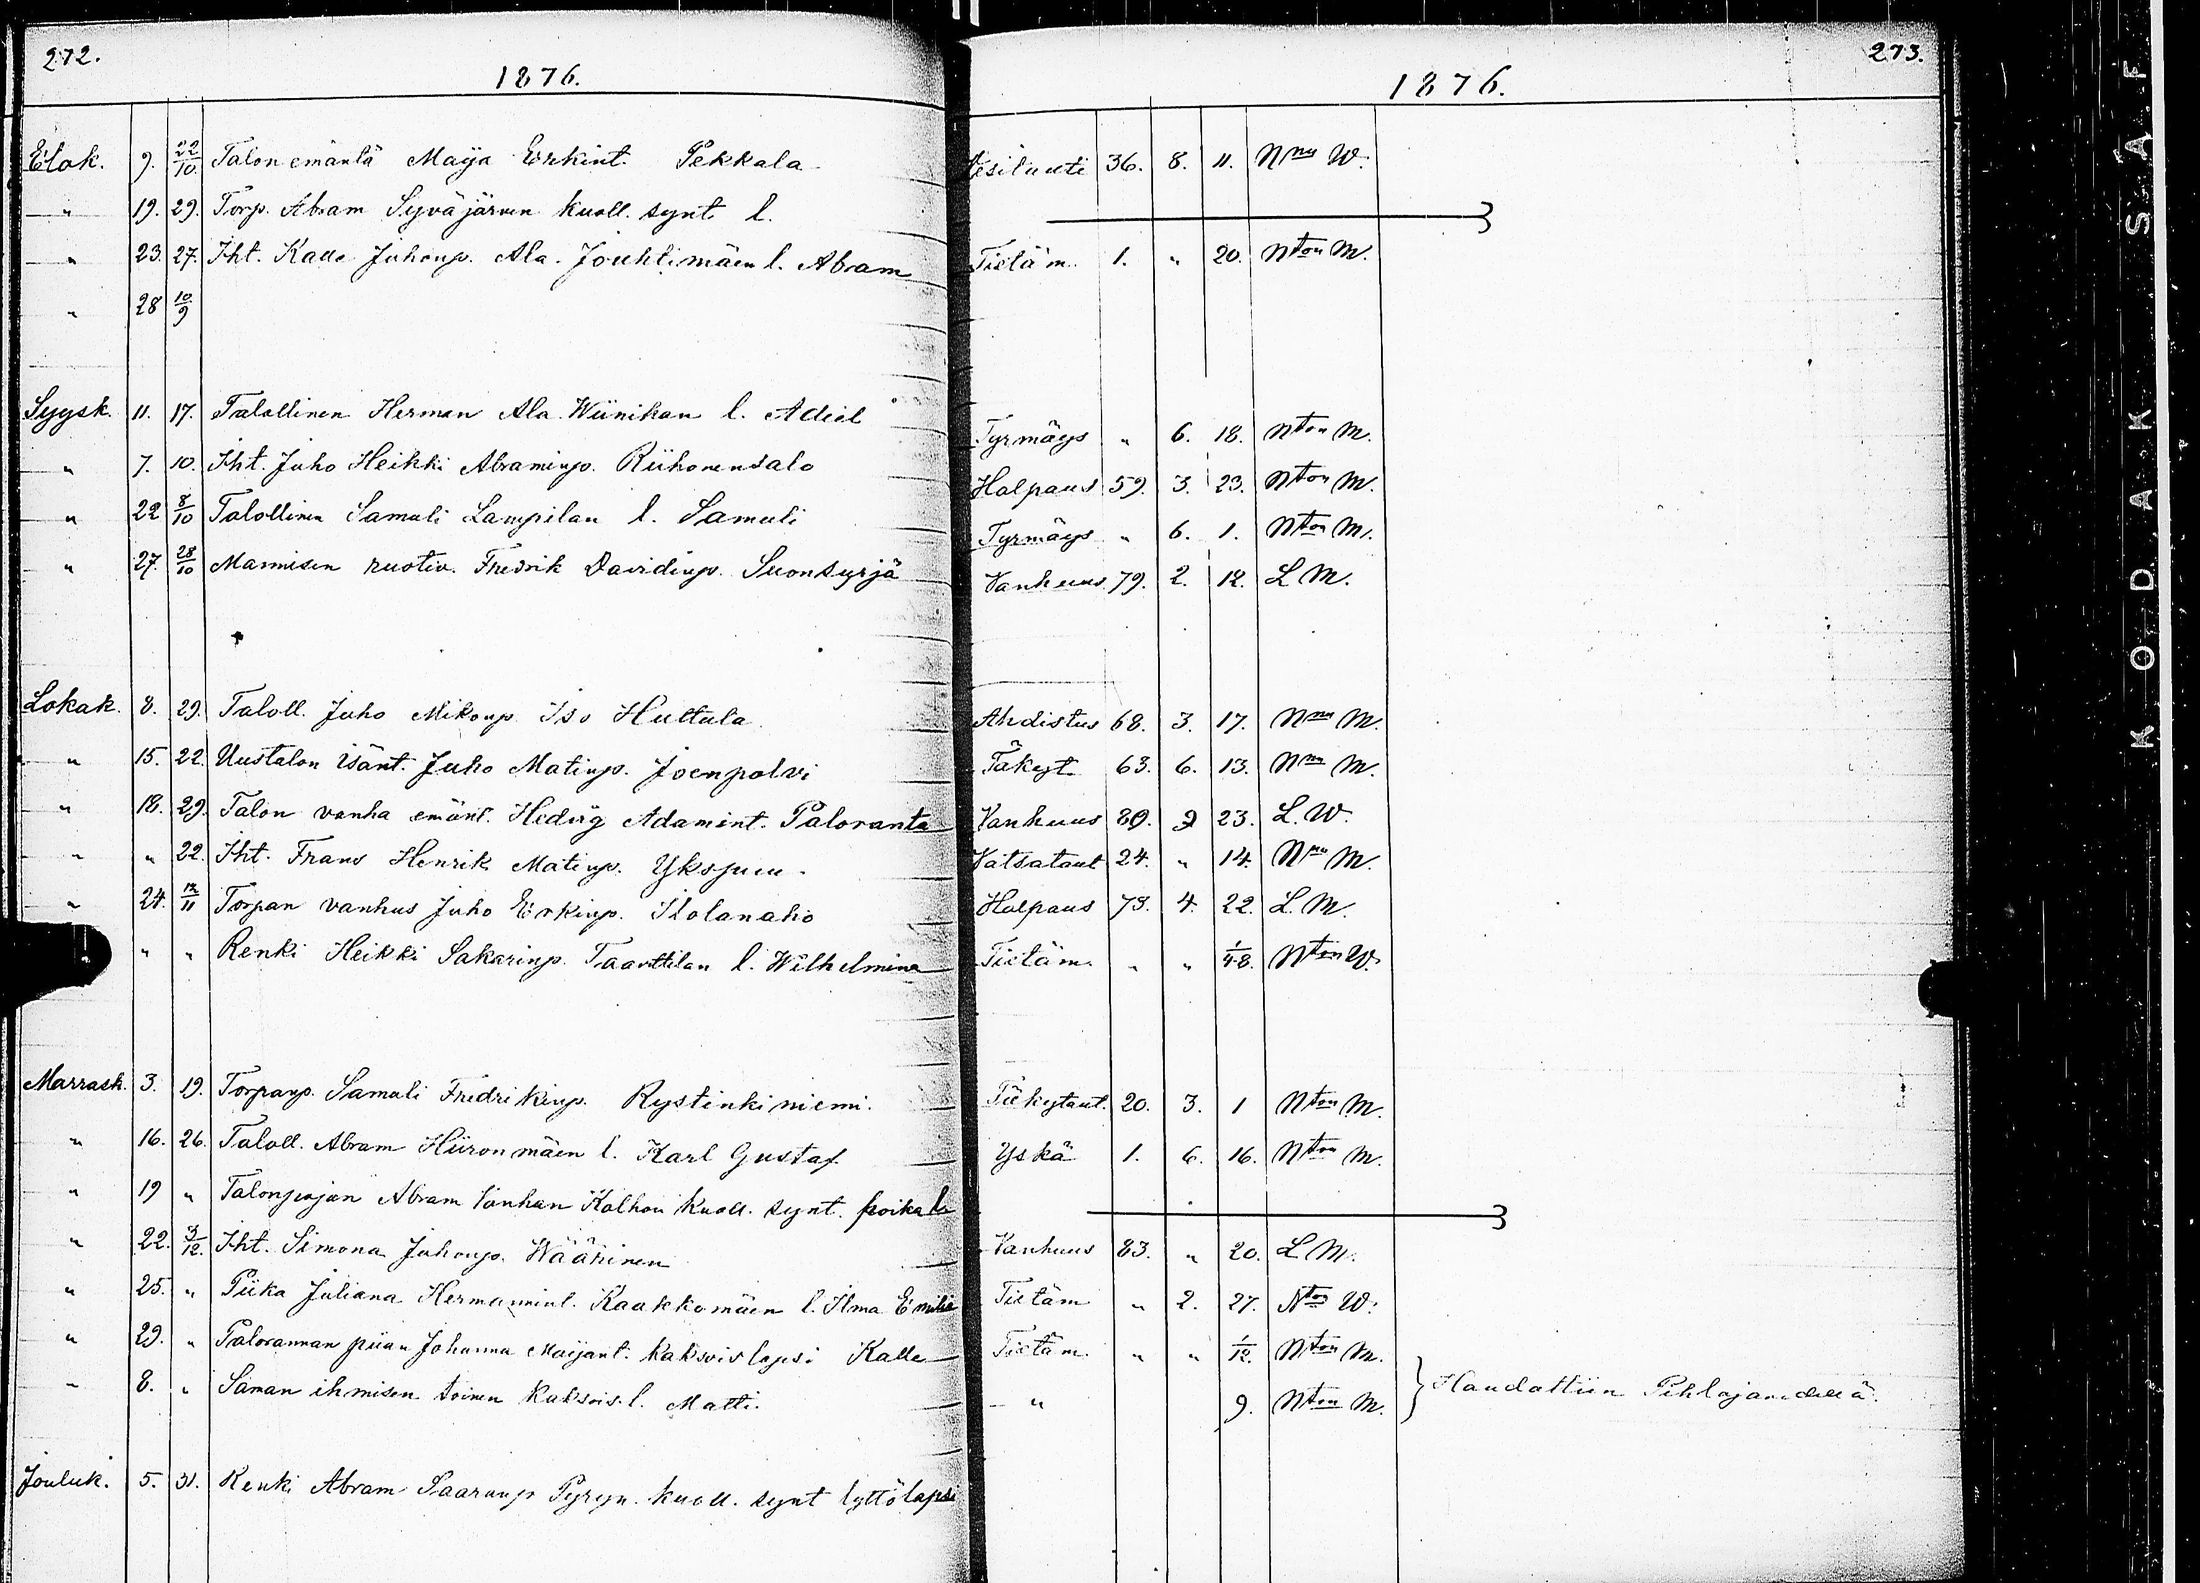 272.
1876.
Elok. 9. 22/10. Talon emäntä Maija Erkint. Pekkala
" 19. 29. Torp. Abram Syväjärven kuoll. synt. l.
" 23. 27. Iht. Kalle Juhonp. Ala-Jouhtimäen l. Abram
" 28 10/9
Syysk. 11. 17. Talollinen Herman Ala Wiinikan l. Adiel
" 7. 10. Iht. Juho Heikki Abraminp. Riihonensalo
" 22 8/10 Talollinen Samuli Lampilan l. Samuli
" 27. 28/10 Mannisen ruotiv. Fredrik Davidinp. Suonsyrjä
Lokak. 8. 29. Taloll. Juho Mikonp. Iso Huttula
" 15. 22. Uustalon isänt. Juho Matinp. Joenpolvi
" 18. 29. Talon vanha emänt. Hedvig Adamint. Paloranta
" " 22. Iht. Frans Henrik Matinp. Yksjuu.
" 24. 12/11 Torpan vanhus Juho Erkinp. Ilolanaho
" " Renki Heikki Sakarinp. Taarttilan l. Wilhelmina
Marrask. 3. 19. Torpanp. Samuli Fredrikinp. Rystinkiniemi.
" 16. 26. Taloll. Abram Hiironmäen l. Karl Gustaf
" 19 " Talonpojan Abram Vanhan Kolhon kuoll. synt. poika l.
" 22. 3/12. Iht. Simona Juhonp. Wäänänen
" 25. " Piika Juliana Hermannint. Kaakkomäen l. Ilma Emilia
" 29. " Palorannan piian Johanna Maijant. kaksoislapsi Kalle
" 8. " Saman ihmisen toinen kaksois l. Matti.
Jouluk. 5. 31. Renki Abram Saaranp Pyryn. kuoll. synt tyttölapsi
273.
1876.
36. 8. 11. Nnu W.
Tietäm. 1. " 20. Nton M.
Tyrmäys " 6. 18. Nton M.
Halpaus 59. 3. 23. Nton M.
Tyrmäys " 6. 1. Nton M.
Vanhuus 79. 2. 12. L M.
Ahdistus 68. 3. 17. Nnu M.
Täkyt. 63. 6. 13. Nnu M.
Vanhuus 89. 9 23. L. W.
Vatsataut 24. " 14. Nnu M.
Halpaus 73. 4. 22. L. M.
Tietäm. " " 1/48. Nton W.
20. 3. 1 Nton M.
Yskä 1. 6. 16. Nton M.
Vanhuus 83. " 20. L M.
Tietäm " 2. 27. Nton W.
Tietäm. " " 1/12. Nton M.
" 9. Nton M.
} Haudattiin
KODAK SAF